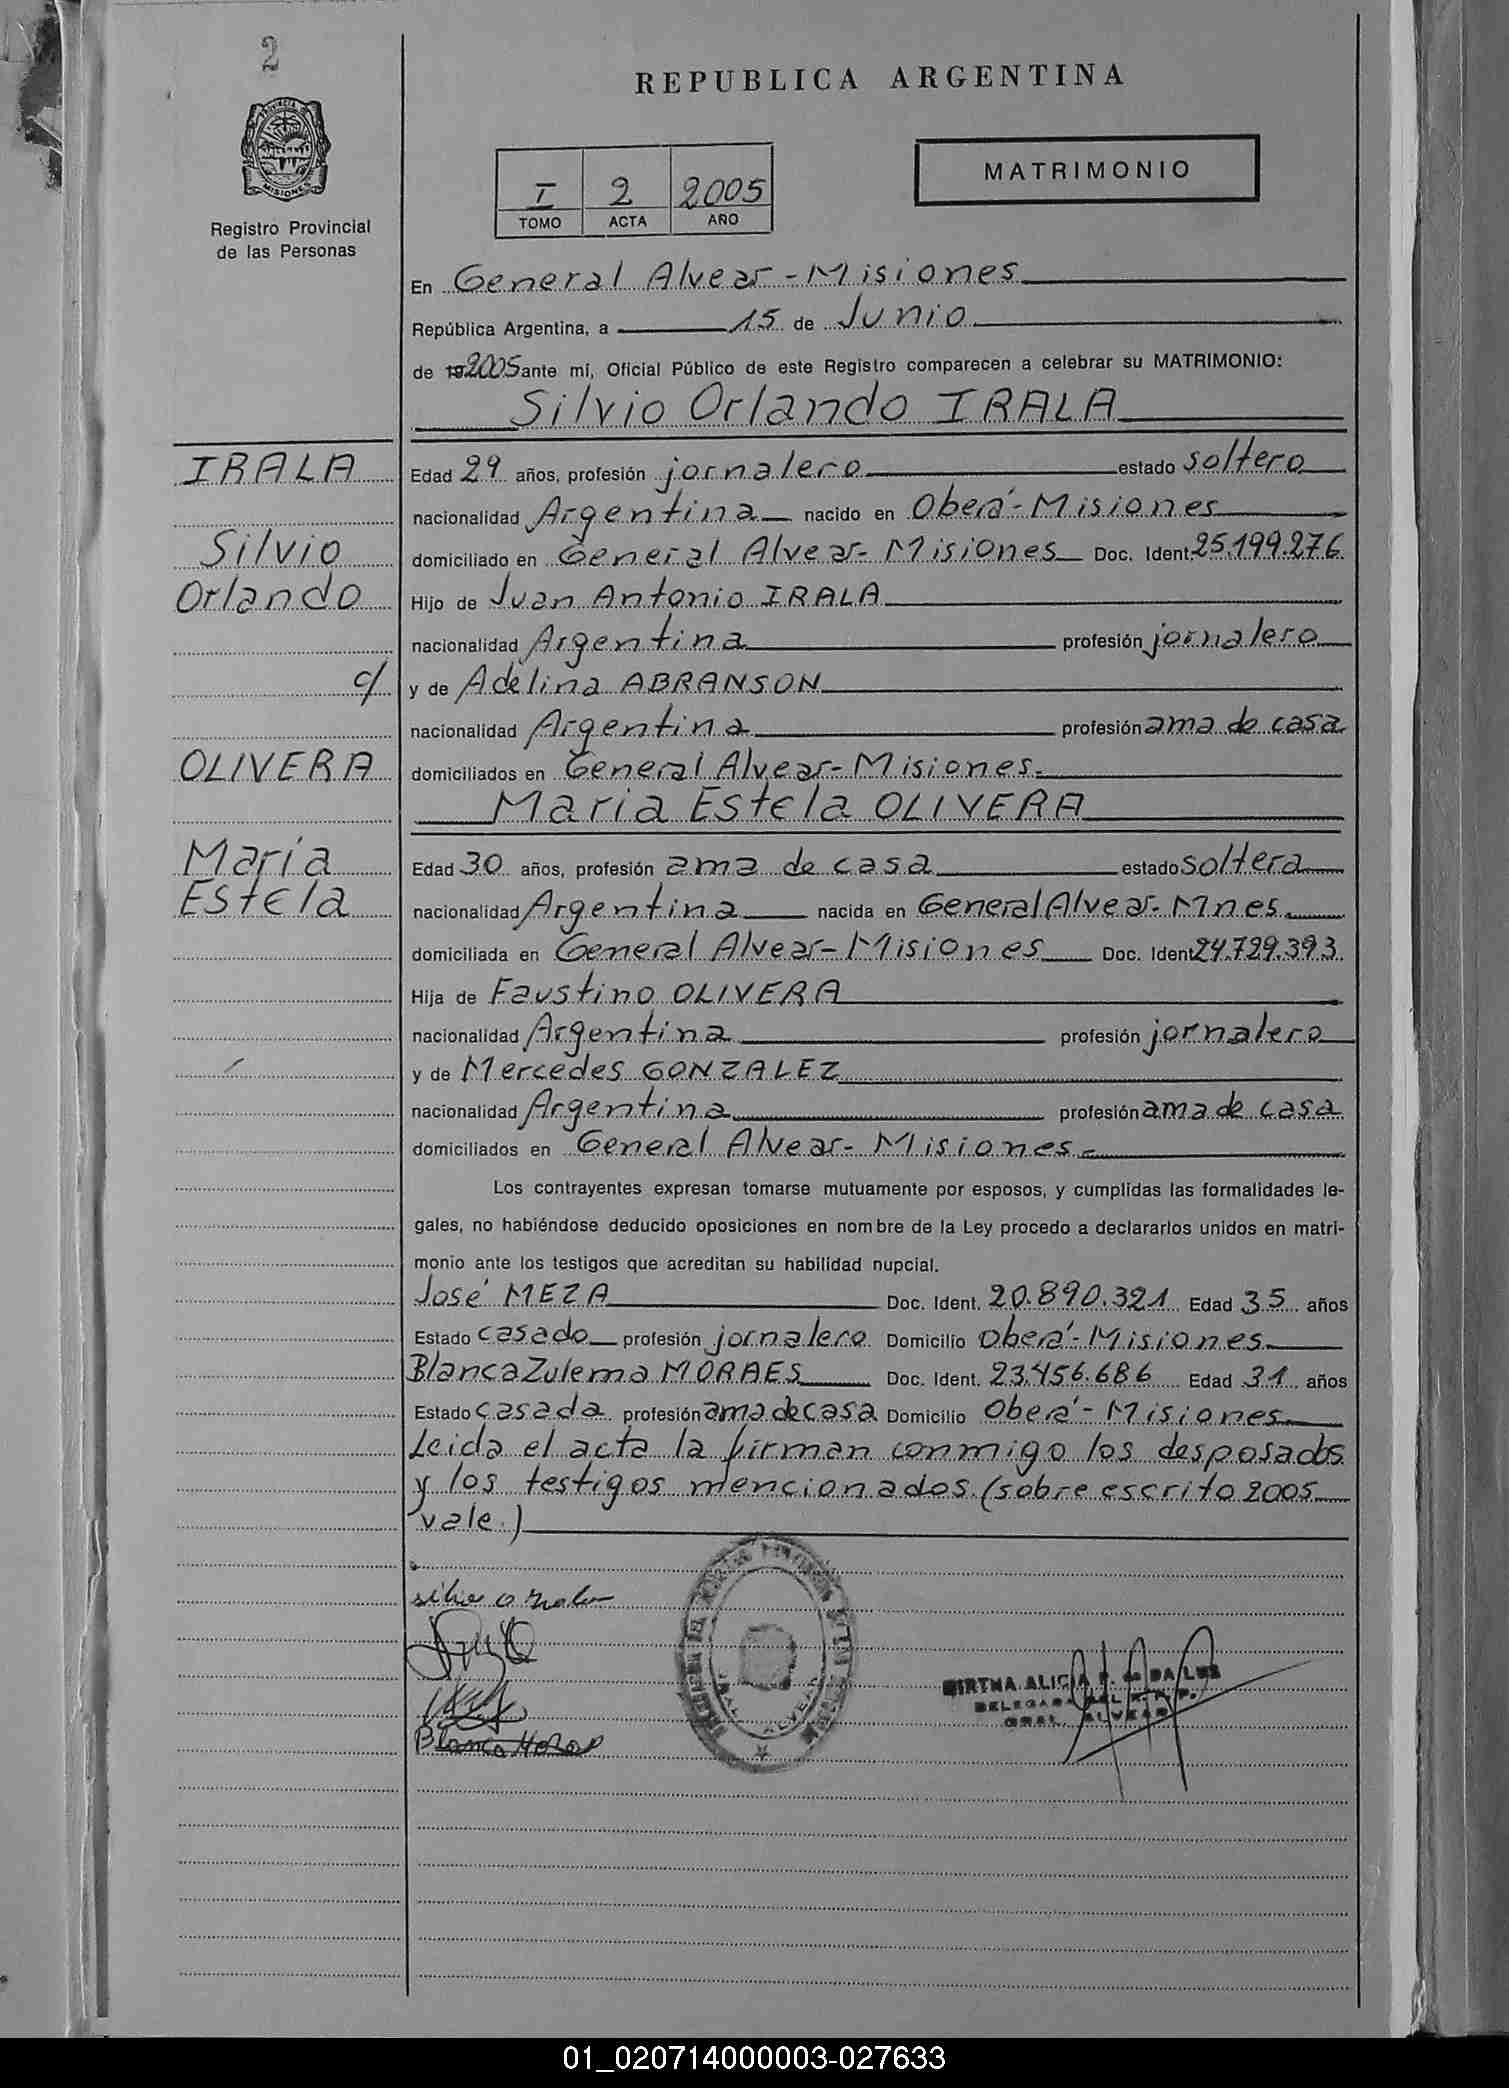 2
REPUBLICA ARGENTINA
PROVINCIA DE
MISIONES
Registro Provincial
de las Personas
I 2 2005
TOMO ACTA AÑO
MATRIMONIO
En General Alvear - Misiones
República Argentina, a 15 de Junio
de 19 2005 ante mí, Oficial Público de este Registro comparecen a celebrar su MATRIMONIO:
Silvio Orlando IRALA
IRALA
Silvio
Orlando
c/
OLIVERA
María
Estela
Edad 29 años, profesión jornalero estado soltero
nacionalidad Argentina nacido en Oberá - Misiones
domiciliado en General Alvear - Misiones Doc. Ident. 25.199.276
Hijo de Juan Antonio IRALA
nacionalidad Argentina profesión jornalero
y de Adelina ABRANSON
nacionalidad Argentina profesión ama de casa
domiciliados en General Alvear - Misiones.
Maria Estela OLIVERA
Edad 30 años, profesión ama de casa estado soltera
nacionalidad Argentina nacida en General Alvear - Mnes.
domiciliada en General Alvear - Misiones Doc. Ident. 24.729.393
Hija de Faustino OLIVERA
nacionalidad Argentina profesión jornalero
y de Mercedes GONZALEZ
nacionalidad Argentina profesión ama de casa
domiciliados en General Alvear - Misiones.
Los contrayentes expresan tomarse mutuamente por esposos, y cumplidas las formalidades le-
gales, no habiéndose deducido oposiciones en nombre de la Ley procedo a declararlos unidos en matri-
monio ante los testigos que acreditan su habilidad nupcial.
José MEZA Doc. Ident. 20.890.321 Edad 35 años
Estado casado profesión jornalero Domicilio Oberá - Misiones
Blanca Zulema MORAES Doc. Ident. 23.456.686 Edad 31 años
Estado casada profesión ama de casa Domicilio Oberá - Misiones
Leida el acta la firman conmigo los desposados
y los testigos mencionados. (sobre escrito 2005
vale.)
GRAL. ALVEAR
MIRTHA ALICIA F. de DA LUZ
DELEGADA DEL R. P. P.
GRAL. ALVEAR
01_020714000003-027633